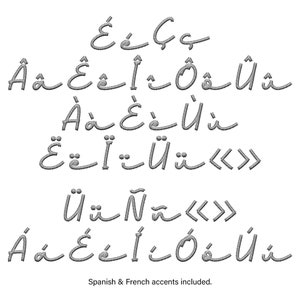 ÉéÇç
ÂâÊêÎîÔôÛû
ÀàÈèÙù
ËëÏïÜü«»
ÜüÑñ«»
ÁáÉéÍíÓóÚú
Spanish & French accents included.